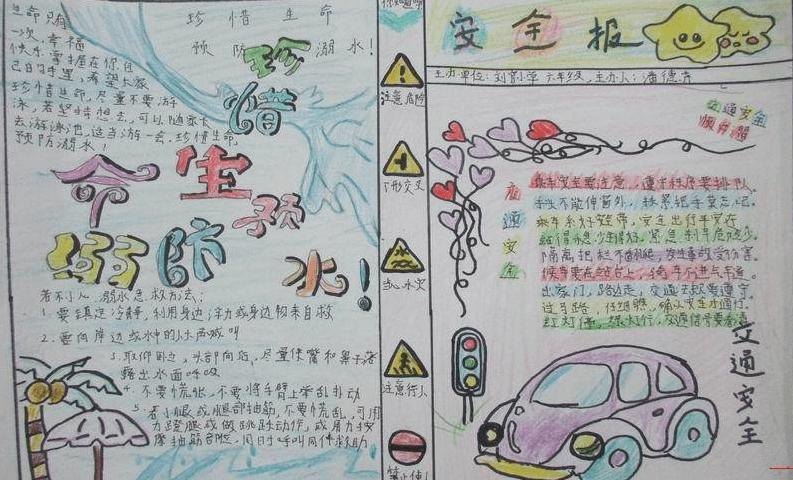 生命只有
一次,幸福
快乐掌握在你自
己的手里,希望大家
珍惜生命,尽量不要游
泳,若坚持想去,可以随家长
去游泳池,适当游一会,珍惜生命,
预防溺水!
珍惜生命
预防溺水!
珍
惜
生
命
预
防
溺
水!
若不小心溺水急救方法:
1.要镇定冷静,利用身边浮力或身边物来自救
2.要向岸边或水中的人大声喊叫
3.取仰卧立,头部向后,尽量使嘴和鼻子落
露出水面呼吸
4.不要慌张,不要将手臂上举乱扑动
5.若小腿或腿部抽筋,不要慌乱,可用
力蹬腿或做跳跃动作,或用力按
摩抽筋部位,同时呼叫同伴救助
注意危险
丁形交叉
当心水灾
注意行人
禁止使入
安全报
主办单位:刘官小学 六年级,主办人:潘德齐
交通安全
顺口溜
交通安全
乘车安全要注意,遵守秩序要排队。
手头不能伸窗外,扶紧把手莫忘记。
隔离护栏不翻越,发生事故受伤害。
候车要在站台上,骑车不进气车道。
出家门,路边走,交通法规要遵守
过马路,仔细瞧,确认安全才通行。
红灯停,绿灯行,交通信号要看清
交通安全